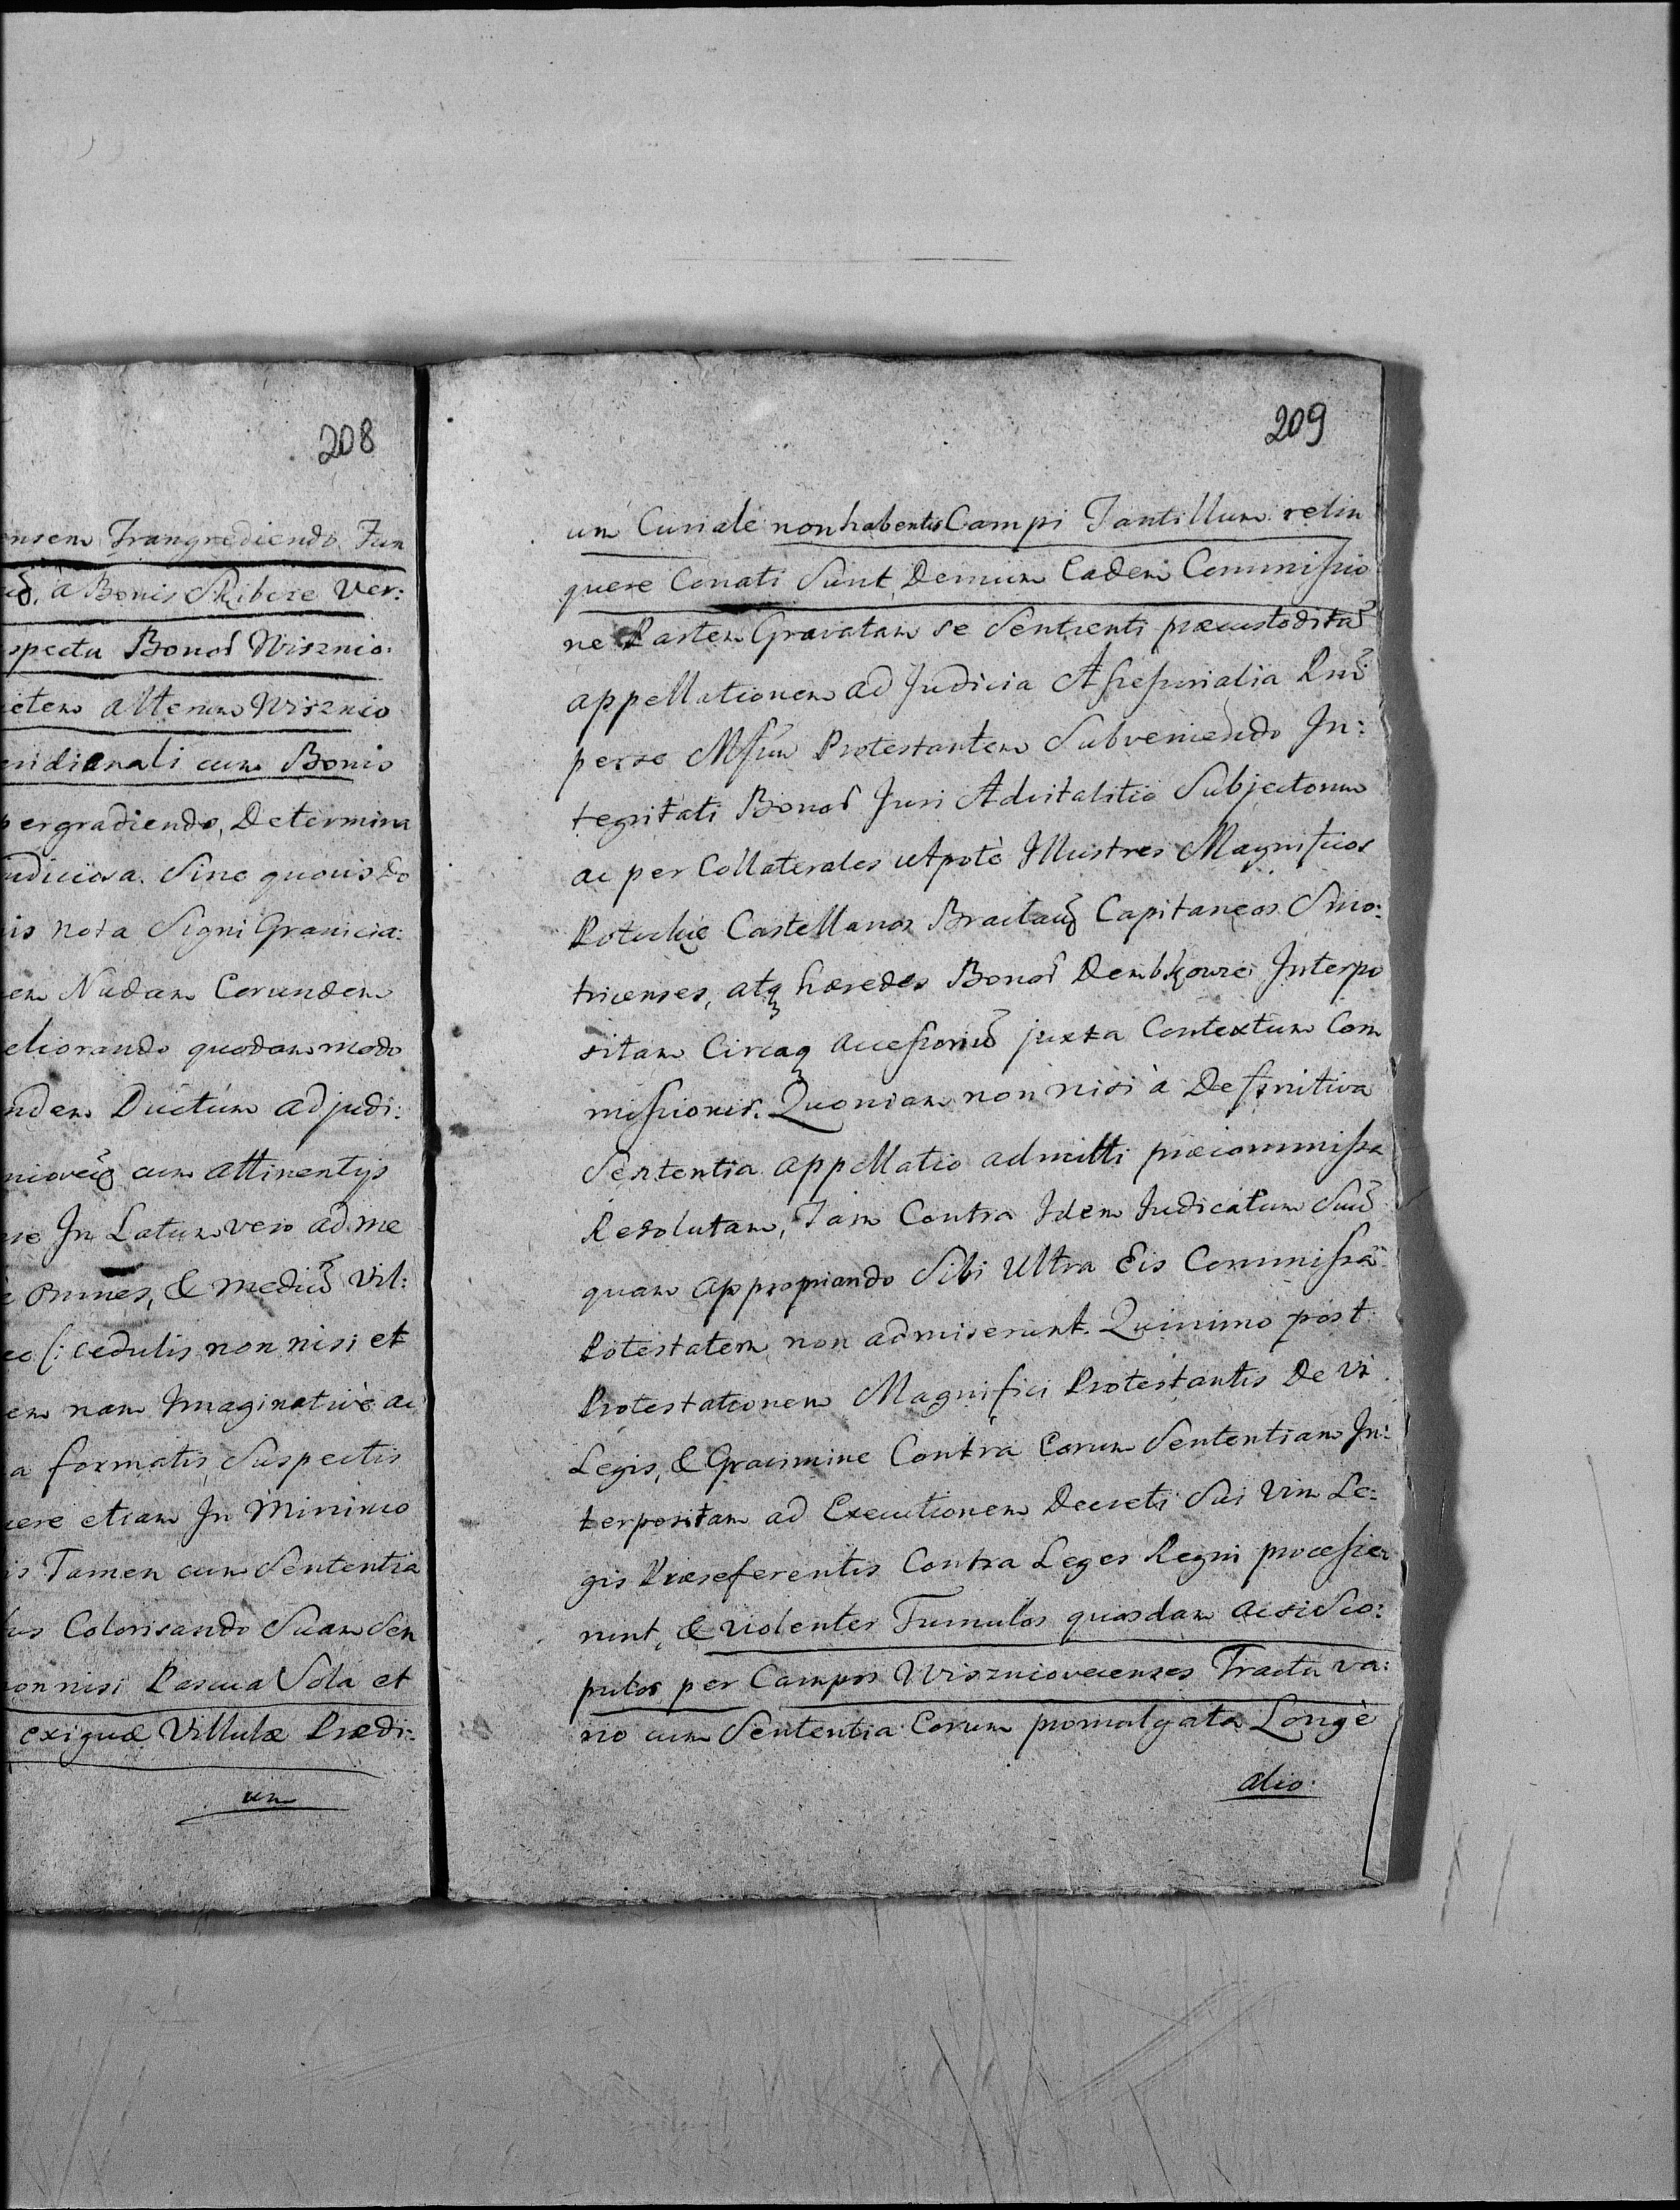 208
ensem Trangrediendo Fun
a Bonis Skibice Ver:
spectu Bonoꝝ Wisznio:
ietem alterum Wisznio
eridianali cum Bonis
pergradiendo, Determina
udiciosa. Sine quovis Do
is nota Signi Granicia:
em Nudam Eorundem
eliorando quodammodo
ndem Ductum adjudi:
cum attinentijs
In Latum vero ad me
omnes, & mediũ Vil:
(: cedulis non nisi et
em nam Imaginative ac
a formatis, Suspectis
cere etiam In Minimo
is Tamen cum Sententia
us Colorisando Suam Sen
non nisi Pascua Sola et
exiguæ Villulæ Prædi:
um
209
um Curiale non habentis Campi Tantillum relin
quere Conati Sunt, Demum Eadem Commissio
ne Partem Gravatam se Sentienti præcustoditã
appellationem ad Judicia Assessorialia Rni
per se Mfcum Protestantem Subveniendo In:
tegritati Bonoꝝ Juri Advitalitio Subjectorum
ac per Collaterales utpotè Illustres Magnificos
Potockie Castellanos Braclaũ Capitaneos Snio:
tricenses, atq hæredes Bonoꝝ Dembkowce Interpo
sitam Circaq accessoriũ juxta Contextum Com
missionis. Quoniam non nisi à Definitiva
Sententia appellatio admitti præcommissa
Resolutam, Tam Contra Idem Judicatum Suũ
quam appropriando Sibi Ultra Eis Commissã
Potestatem, non admiserunt. Quinimo post
Protestationem Magnifici Protestantis De Vi
Legis, & Gravimine Contra Eorum Sententiam In:
terpositam ad Executionem Decreti Sui Vim Le:
gis Præseferentis Contra Leges Regni processer
runt, & violenter Tumulos quosdam ac si Sco:
pulos per Campos Wiszniovecenses Tractu va:
rio cum Sententia Eorum promulgata Longè
alio